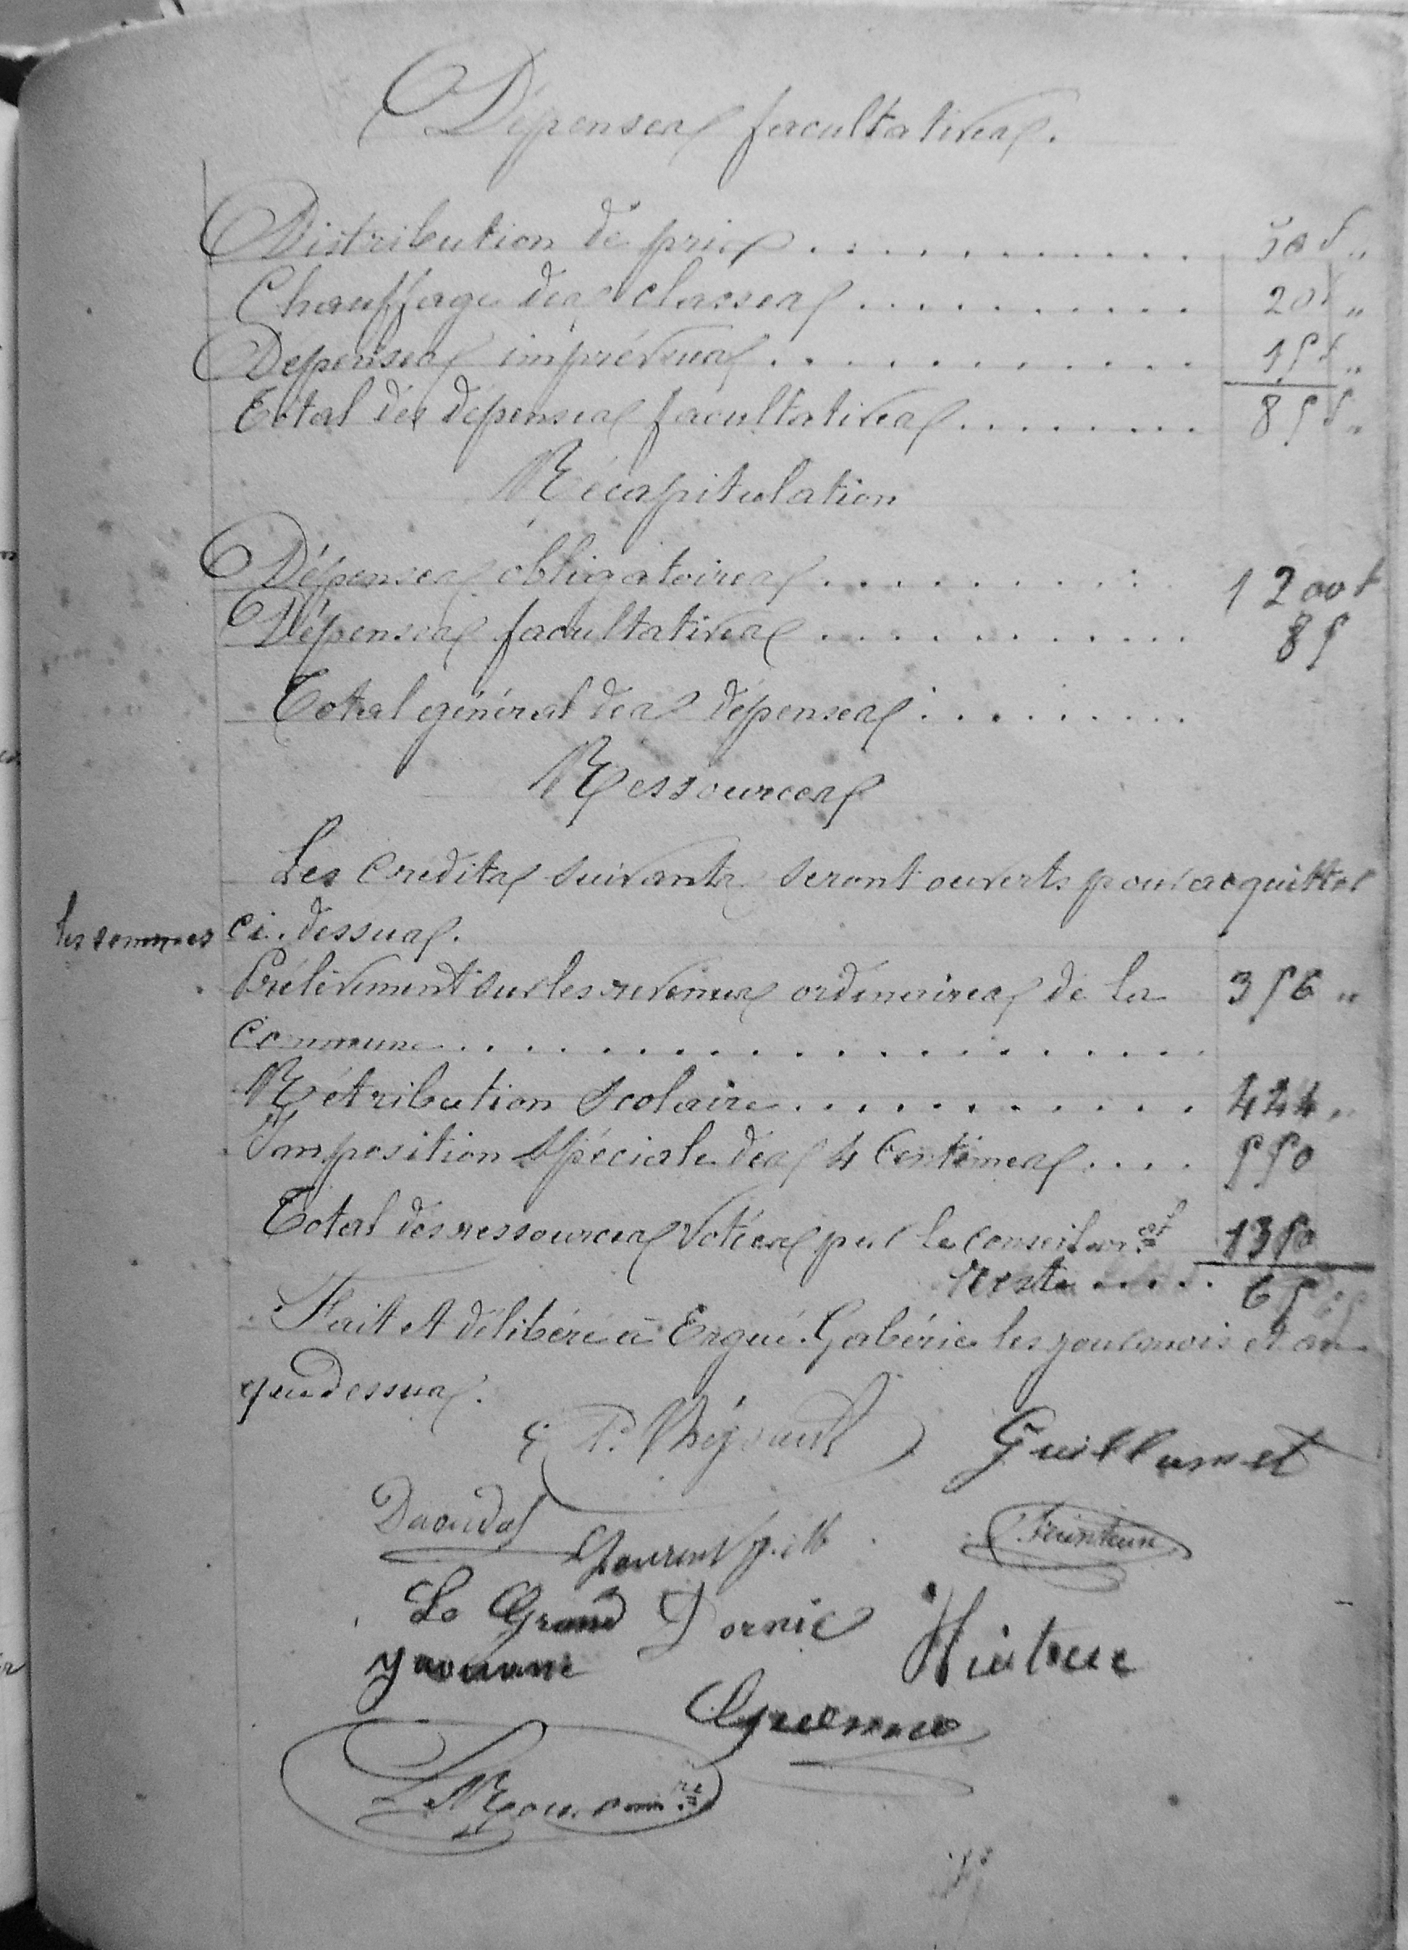 Dépenses facultatives.
Distribution de prix . . . . . . . . . . . 50 f "
Chauffage des classes . . . . . . . . . . 20 f "
Dépenses imprévues . . . . . . . . . . . . 15 f "
Total des dépenses facultatives . . . . . . . . 85 f "
Récapitulation
Dépenses obligatoires . . . . . . . . . 1200 f
Dépenses facultatives . . . . . . . . . . . . 85
Total général des dépenses . . . . . . . . .
Ressources
Les crédits suivants seront ouverts pour acquitter
les sommes ci-dessus.
Prélèvement sur les revenus ordinaires de la 356 "
commune . . . . . . . . . . . . . . . . . . . .
Rétribution scolaire . . . . . . . . . . . 444 "
Imposition spéciale des 4 Centimes . . . . 550
Total des ressources votées par le conseil m.al 1350
Reste . . . . . 65
Fait et délibéré à Ergué-Gabéric les jour mois et an
que dessus.
Guillamet
Daoudal
Feunteun
Le Grand Dornic
yaouanc